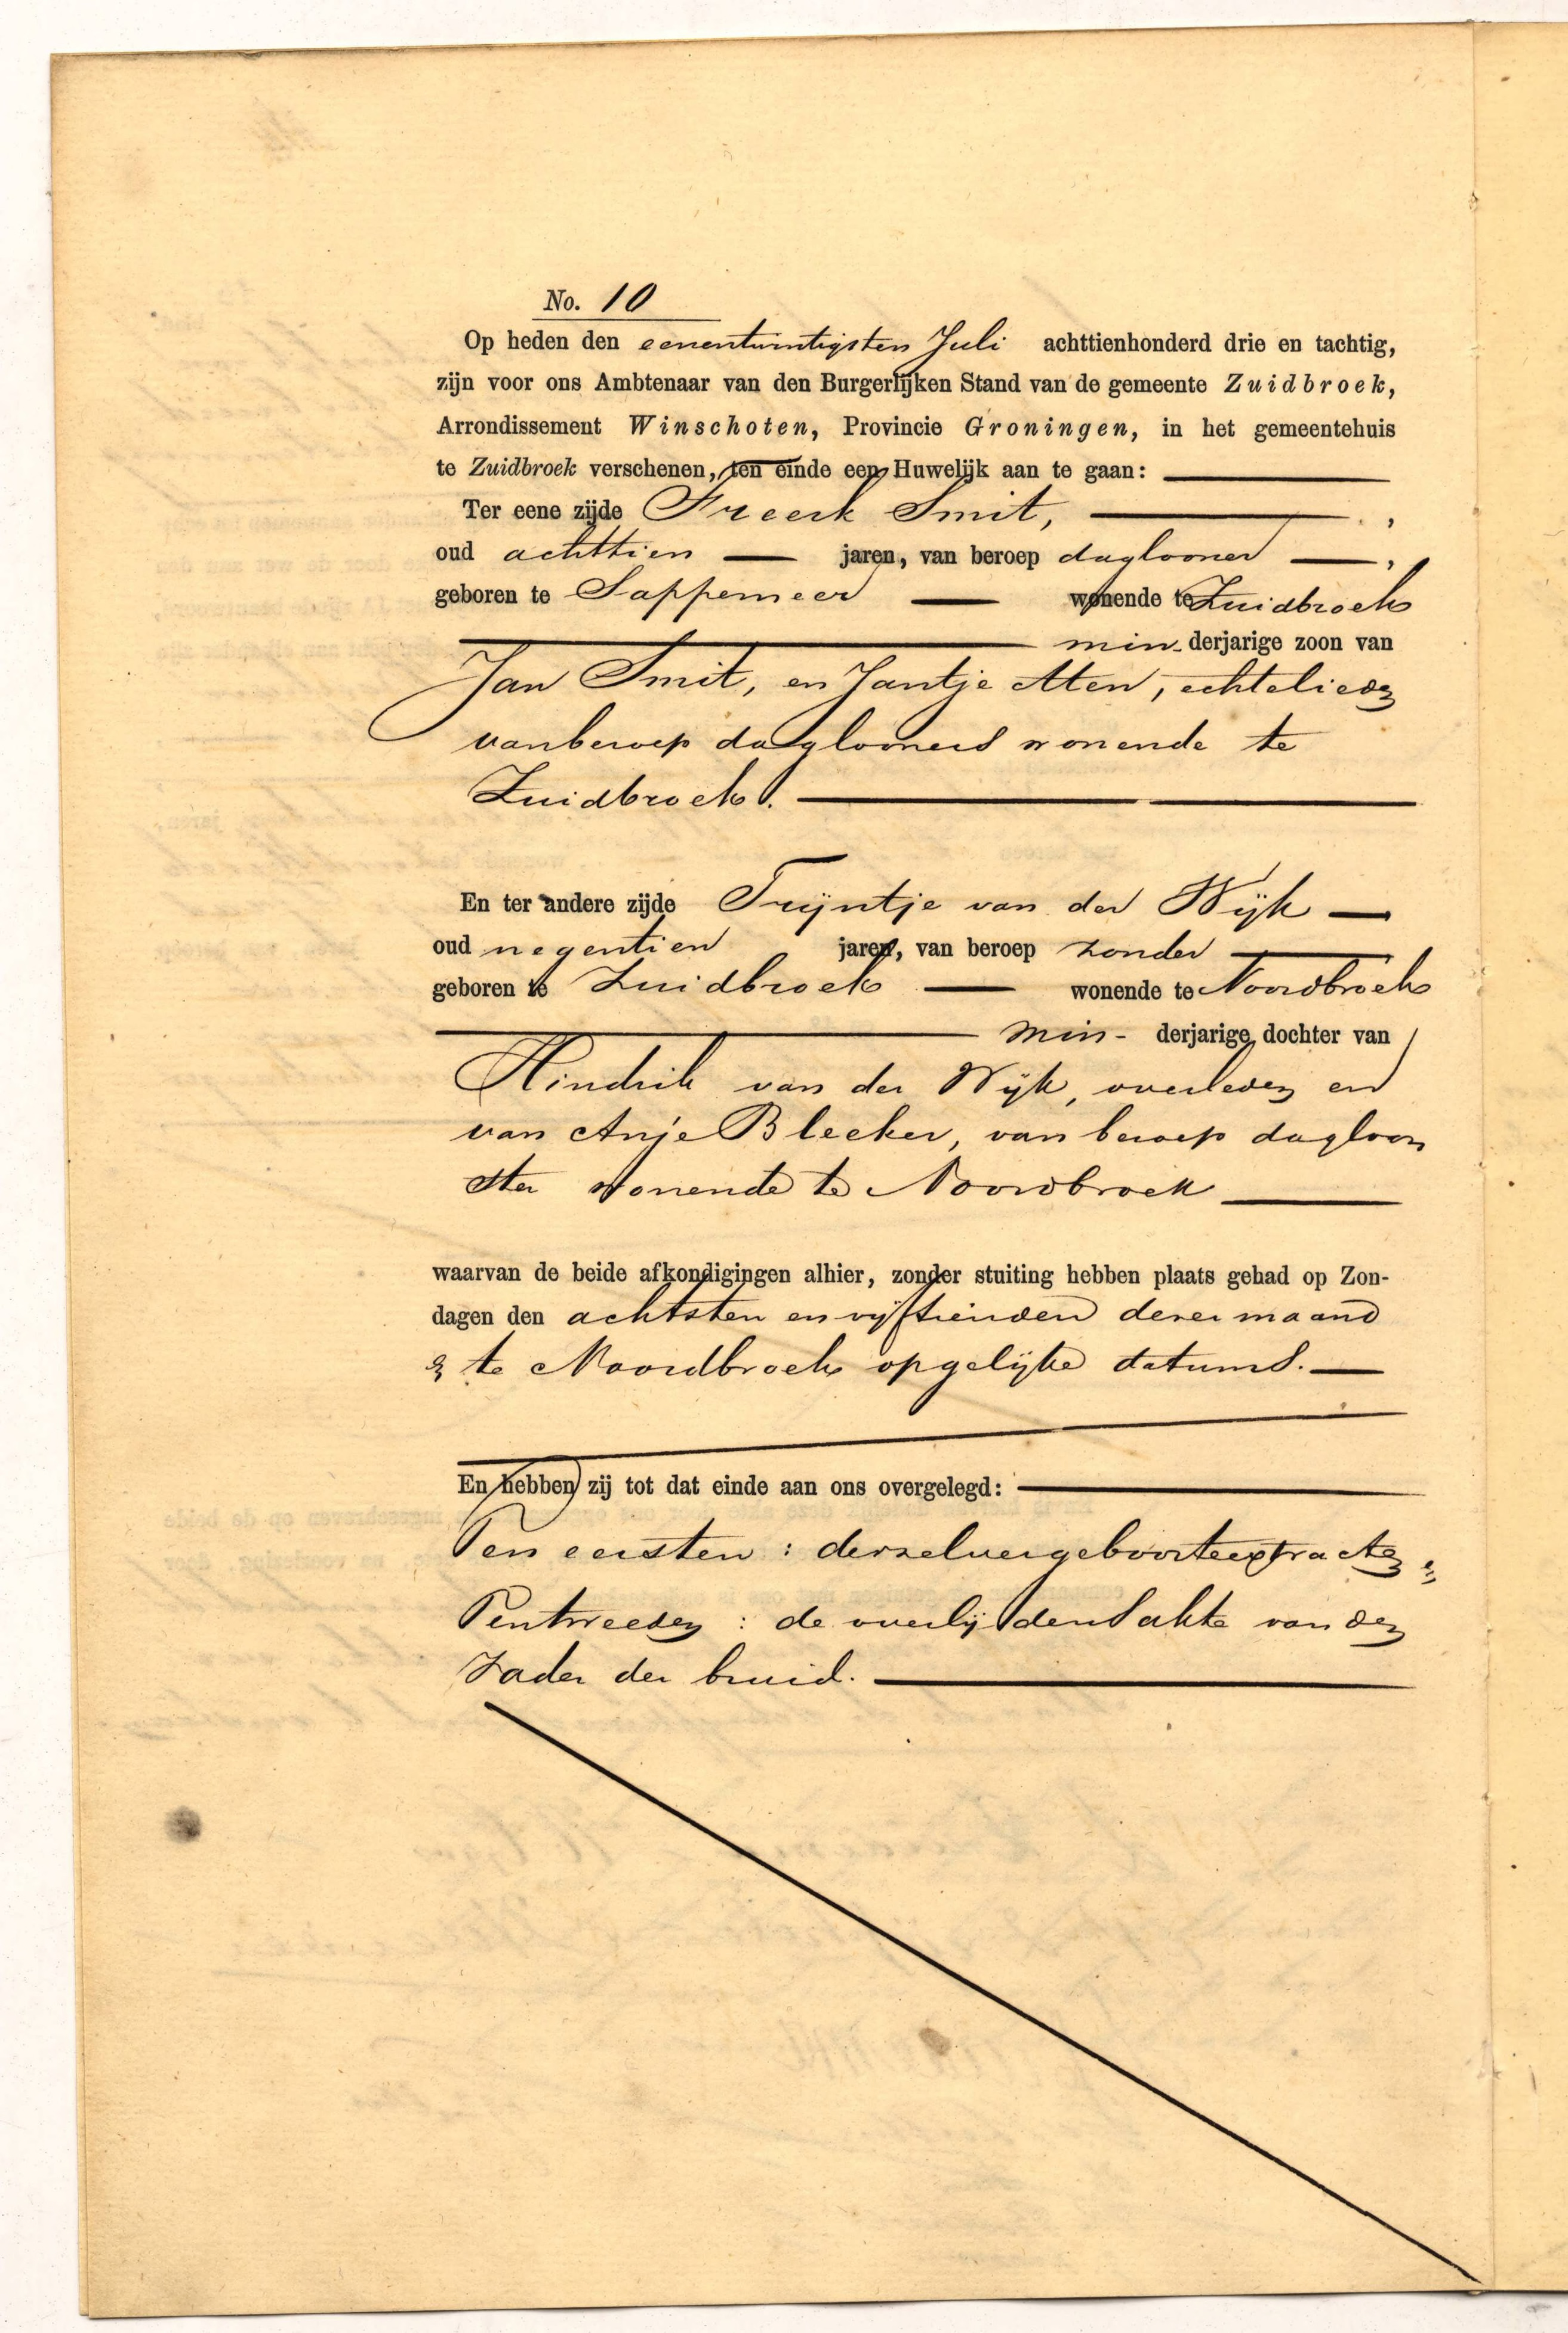 No. 10
Op heden den eenentwintigsten Juli achttienhonderd drie en tachtig,
zijn voor ons Ambtenaar van den Burgerlijken Stand van de gemeente Zuidbroek,
Arrondissement Winschoten, Provincie Groningen, in het gemeentehuis
te Zuidbroek verschenen, ten einde een Huwelijk aan te gaan:
Ter eene zijde Freerk Smit,
oud achttien jaren, van beroep daglooner
geboren te Sappemeer wonende te Zuidbroek
min- derjarige zoon van
Jan Smit, en Jantje Aten, echtelieden
van beroep daglooners wonende te
Zuidbroek.
En ter andere zijde Trijntje van der Wijk
oud negentien jaren, van beroep zonder
geboren te Zuidbroek wonende te Noordbroek
min- derjarige dochter van
Hindrik van der Wijk, overleden en
van Anje Bleeker, van beroep dagloon
ster wonende te Noordbroek
waarvan de beide afkondigingen alhier, zonder stuiting hebben plaats gehad op Zon-
dagen den achtsten en vijftienden dezer maand
& te Noordbroek op gelijke datums.
En hebben zij tot dat einde aan ons overgelegd:
Ten eersten : derzelver geboorteextracten
Ten tweeden : de overlijdensakte van den
Vader der bruid.